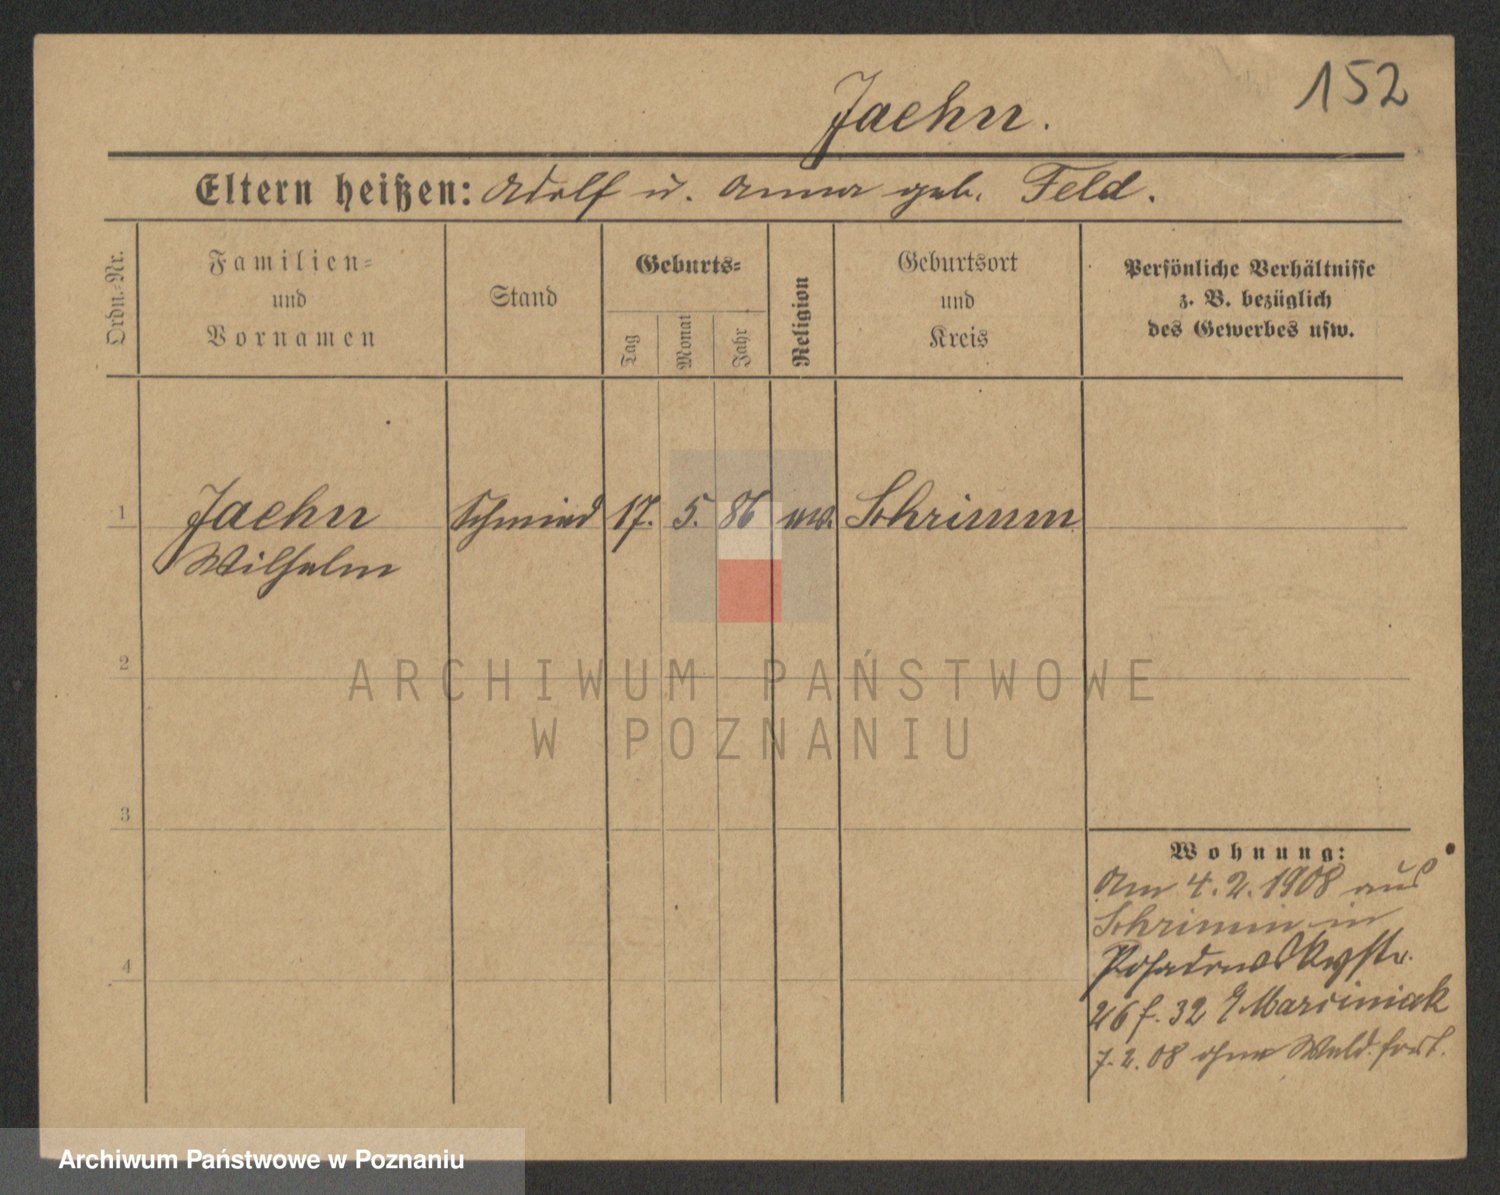 152
Jaehn.
Eltern heißen: Adolf u. Anna geb. Feld.
Ordn.=Nr.
Familien=
und
Vornamen
Stand
Geburts=
Tag
Monat
Jahr
Religion
Geburtsort
und
Kreis
Persönliche Verhältnisse
z. B. bezüglich
des Gewerbes usw.
1 Jaehn Schmied 17. 5. 86 ew. Schrimm
Wilhelm
2
ARCHIWUM PAŃSTWOWE
W POZNANIU
3
Wohnung:
Am 4.2.1908 aus
Schrimm in
Posadowskystr.
26 f. 32 Marciniak
4
7.2.08 ohne Meld. fort.
Archiwum Państwowe w Poznaniu